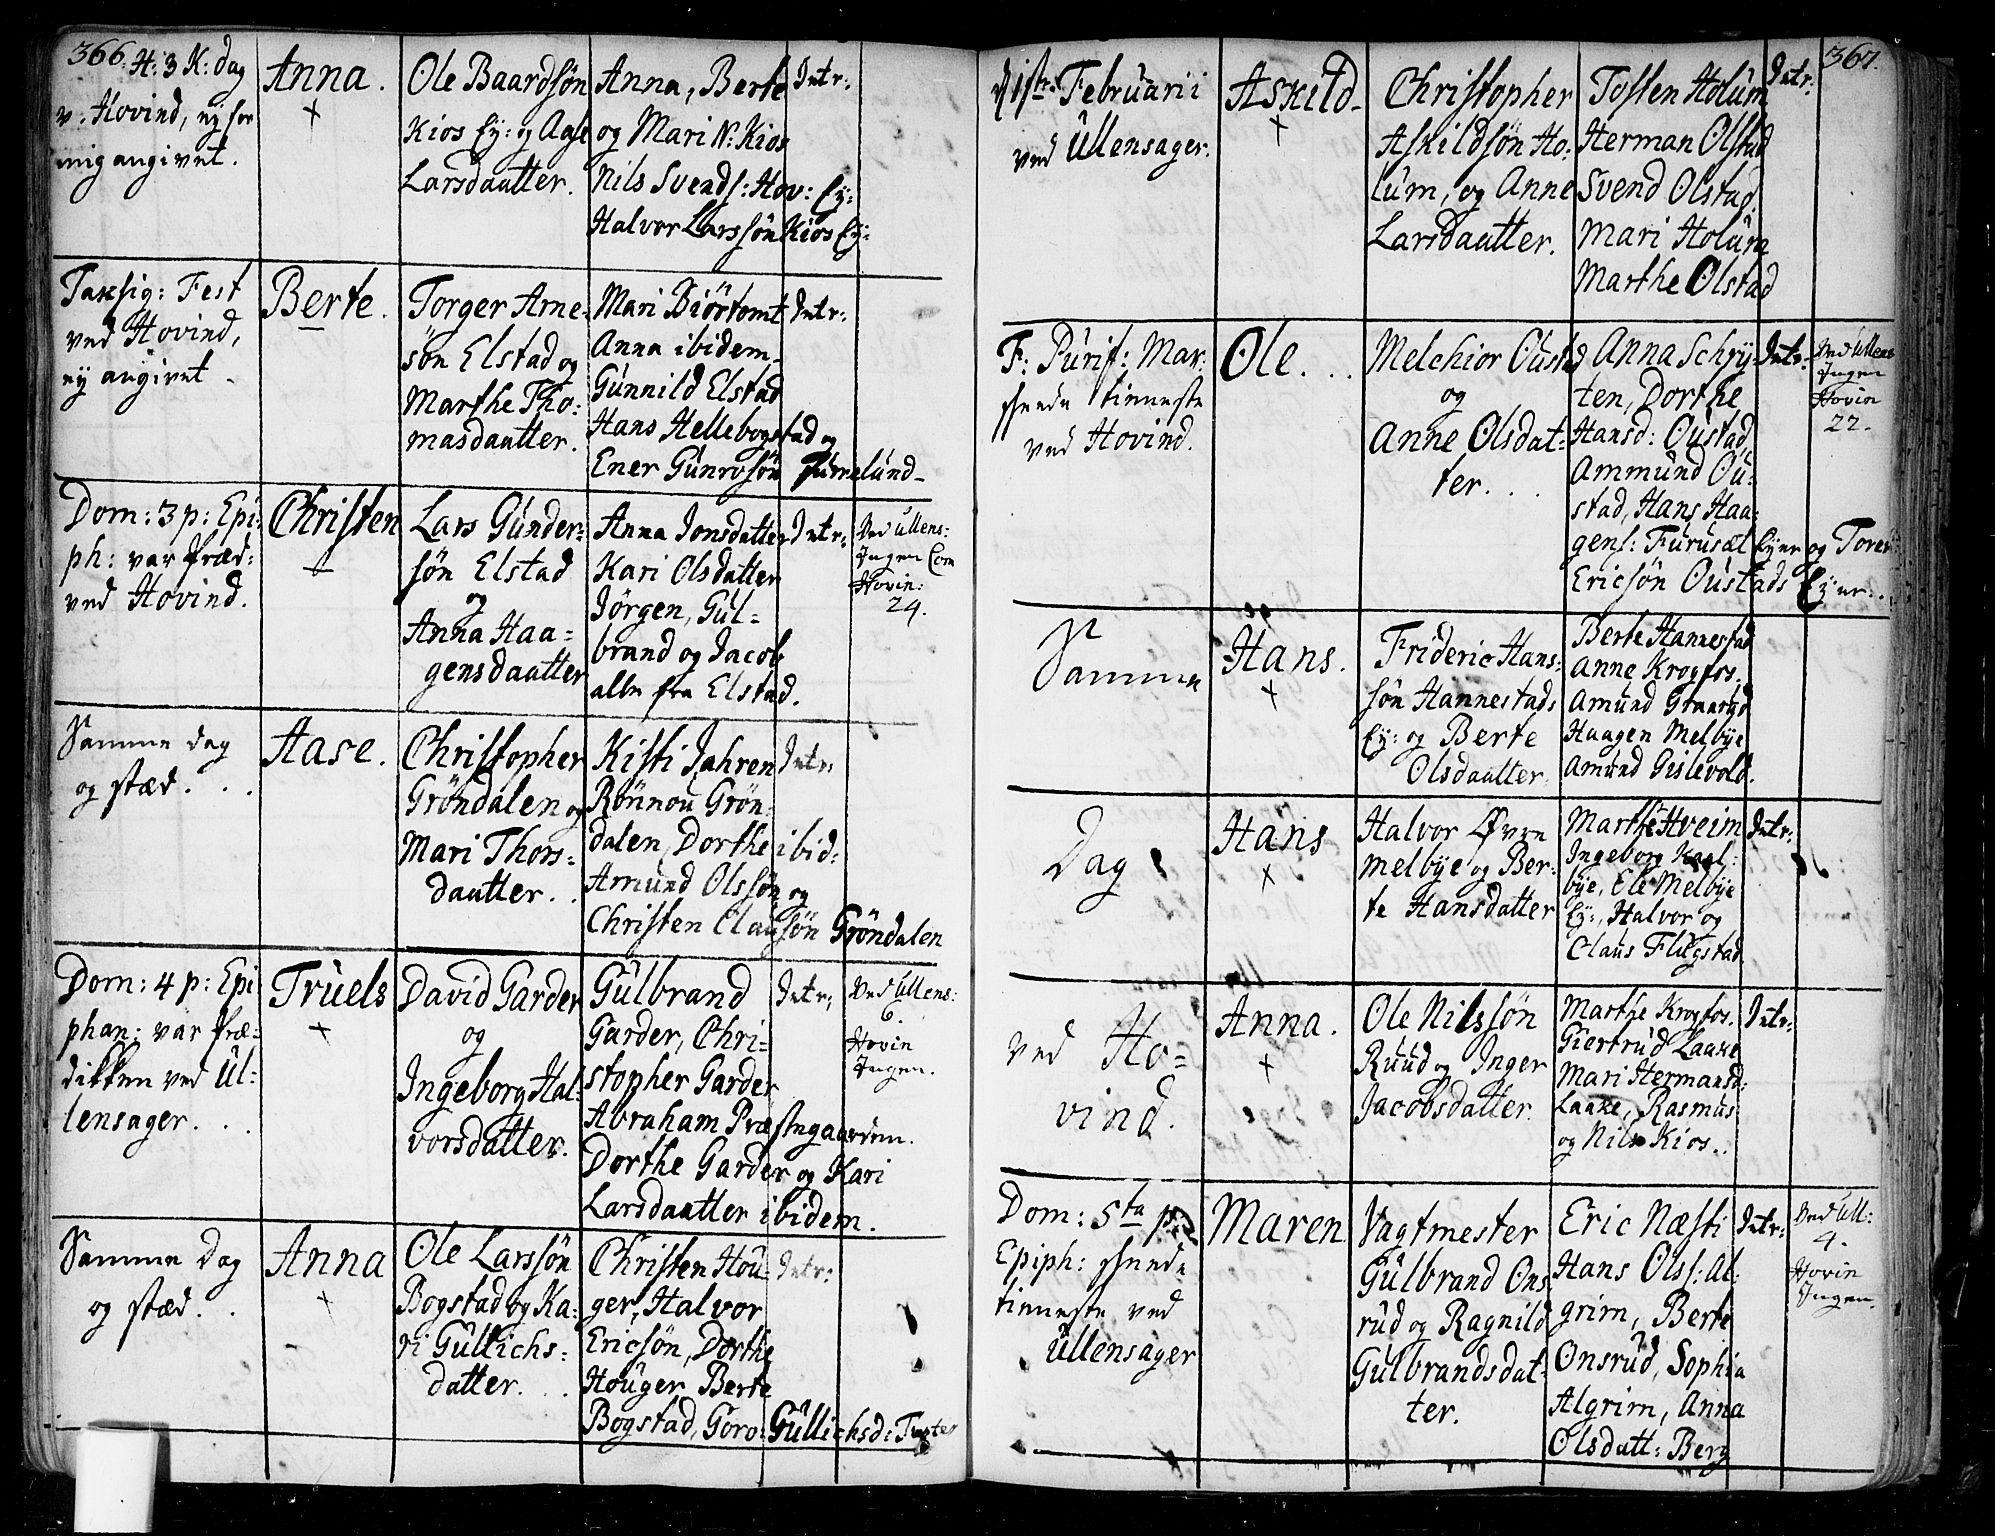 366.
H: 3 K: dag
v. Hovind, ny for
mig angivet.
Anna.
Ole Baardsøn
Kios Ey: og Aase
Larsdaatter.
Anna, Berte
og Mari N: Kios
Nils Svends: Hov: Ey:
Halvor Larssøn Kios Ey:
Intr:
Taksig: Fest
ved Hovind,
ny angivet.
Berte.
Torger Arne-
søn Elstad og
Marthe Tho:
masdaatter.
Mari Biörtomt
Anna ibidem
Gunnild Elstad
Hans Hellebogstad og
Ener Gunrosøn Furuelund
Intr:
Dom: 3 p: Epi:
ph: var præd:
ved Hovind.
Christen
Lars Gunder-
søn Elstad
og
Anna Haa=
gensdaatter
Anna Jonsdatter
Kari Olsdatter
Jörgen, Gul-
brand og Jacob
alle fra Elstad.
Intr:
Ved Ullens:
Ingen Com
Hovin:
24.
Samme dag
og stæd. . .
Aase.
Christopher
Gröndalen og
Mari Thors-
daatter. .
Kisti Jahren
Rönnou Grön-
dalen, Dorthe ibid:
Amund Olssøn og
Christen Clausøn Gröndalen
Intr:
Dom: 4 p: Epi
phan: var præ-
dikken ved Ul:
lensager. . .
Truels
David Garder
og
Ingeborg Hal-
vorsdatter.
Gulbrand
Garder, Chri-
stopher Garder
Abraham Præstegaarden.
Dorthe Garder og Kari
Larsdaatter ibidem.
Intr:
Ved Ullens:
6
Hovin
Ingen.
Samme Dag
og stæd. .
Anna
Ole Larssøn
Bogstad og Ka-
ri Gullichs:
datter. . .
Christen Hou-
ger, Halvor
Ericsøn, Dorthe
Houger, Berte
Bogstad, Goro: Gullichsd:
Intr:
367.
d 1ste Februarii
ved Ullensager.
Askild.
Christopher
Askildsøn Ho-
lum, og Anne
Larsdaatter.
Tosten Holum
Herman Olstad
Svend Olstad,
Mari Holum
Marthe Olstad
Intr:
F: Purif: Mar:
skeede tienneste
ved Hovind.
Ole. . .
Melchior Oustad
og
Anne Olsdat-
ter. . .
Anna Schry-
ten, Dorthe
Hansd: Oustad,
Ammund Ou-
stad, Hans Haa-
gens: Furusæt Eyer og Tore
Ericsøn Oustads Eyer. .
Intr.
Ved Ullens
Ingen
Hovin
22.
Samme
Hans.
Frideric Hans:
søn Hannestads
Ey: og Berte
Olsdaatter.
Berte Hannestad
Anne Krogfos.
Amund
Haagen Melbye
Amund Gislevold.
Dag
Hans
Halvor Øvre
Melbye og Ber-
te Hansdatter
Marthe Hveim
Ingeborg Kaal:
bye, Ele Melbye
Ey:, Halvor og
Claus Flugstad
Intr:
ved Ho-
vind.
Anna.
Ole Nilssøn
Ruud og Inger
Jacobsdatter.
Marthe Krogfos.
Giertrud Laake
Mari Hermansd:
Laake, Rasmus
og Nils Kios. .
Intr:
Dom: 5ta p:
Epiph: skeede
tienneste ved
Ullensager
Maren
Vagtmester
Gulbrand Ons
rud og Ragnild
Gulbrandsdat-
ter.
Eric Næsti
Hans Ols: Al:
grim, Berte
Onsrud, Sophia
Algrim, Anna
Olsdatt: Berg
Intr:
Ved Ull:
4.
Hovin
Ingen.